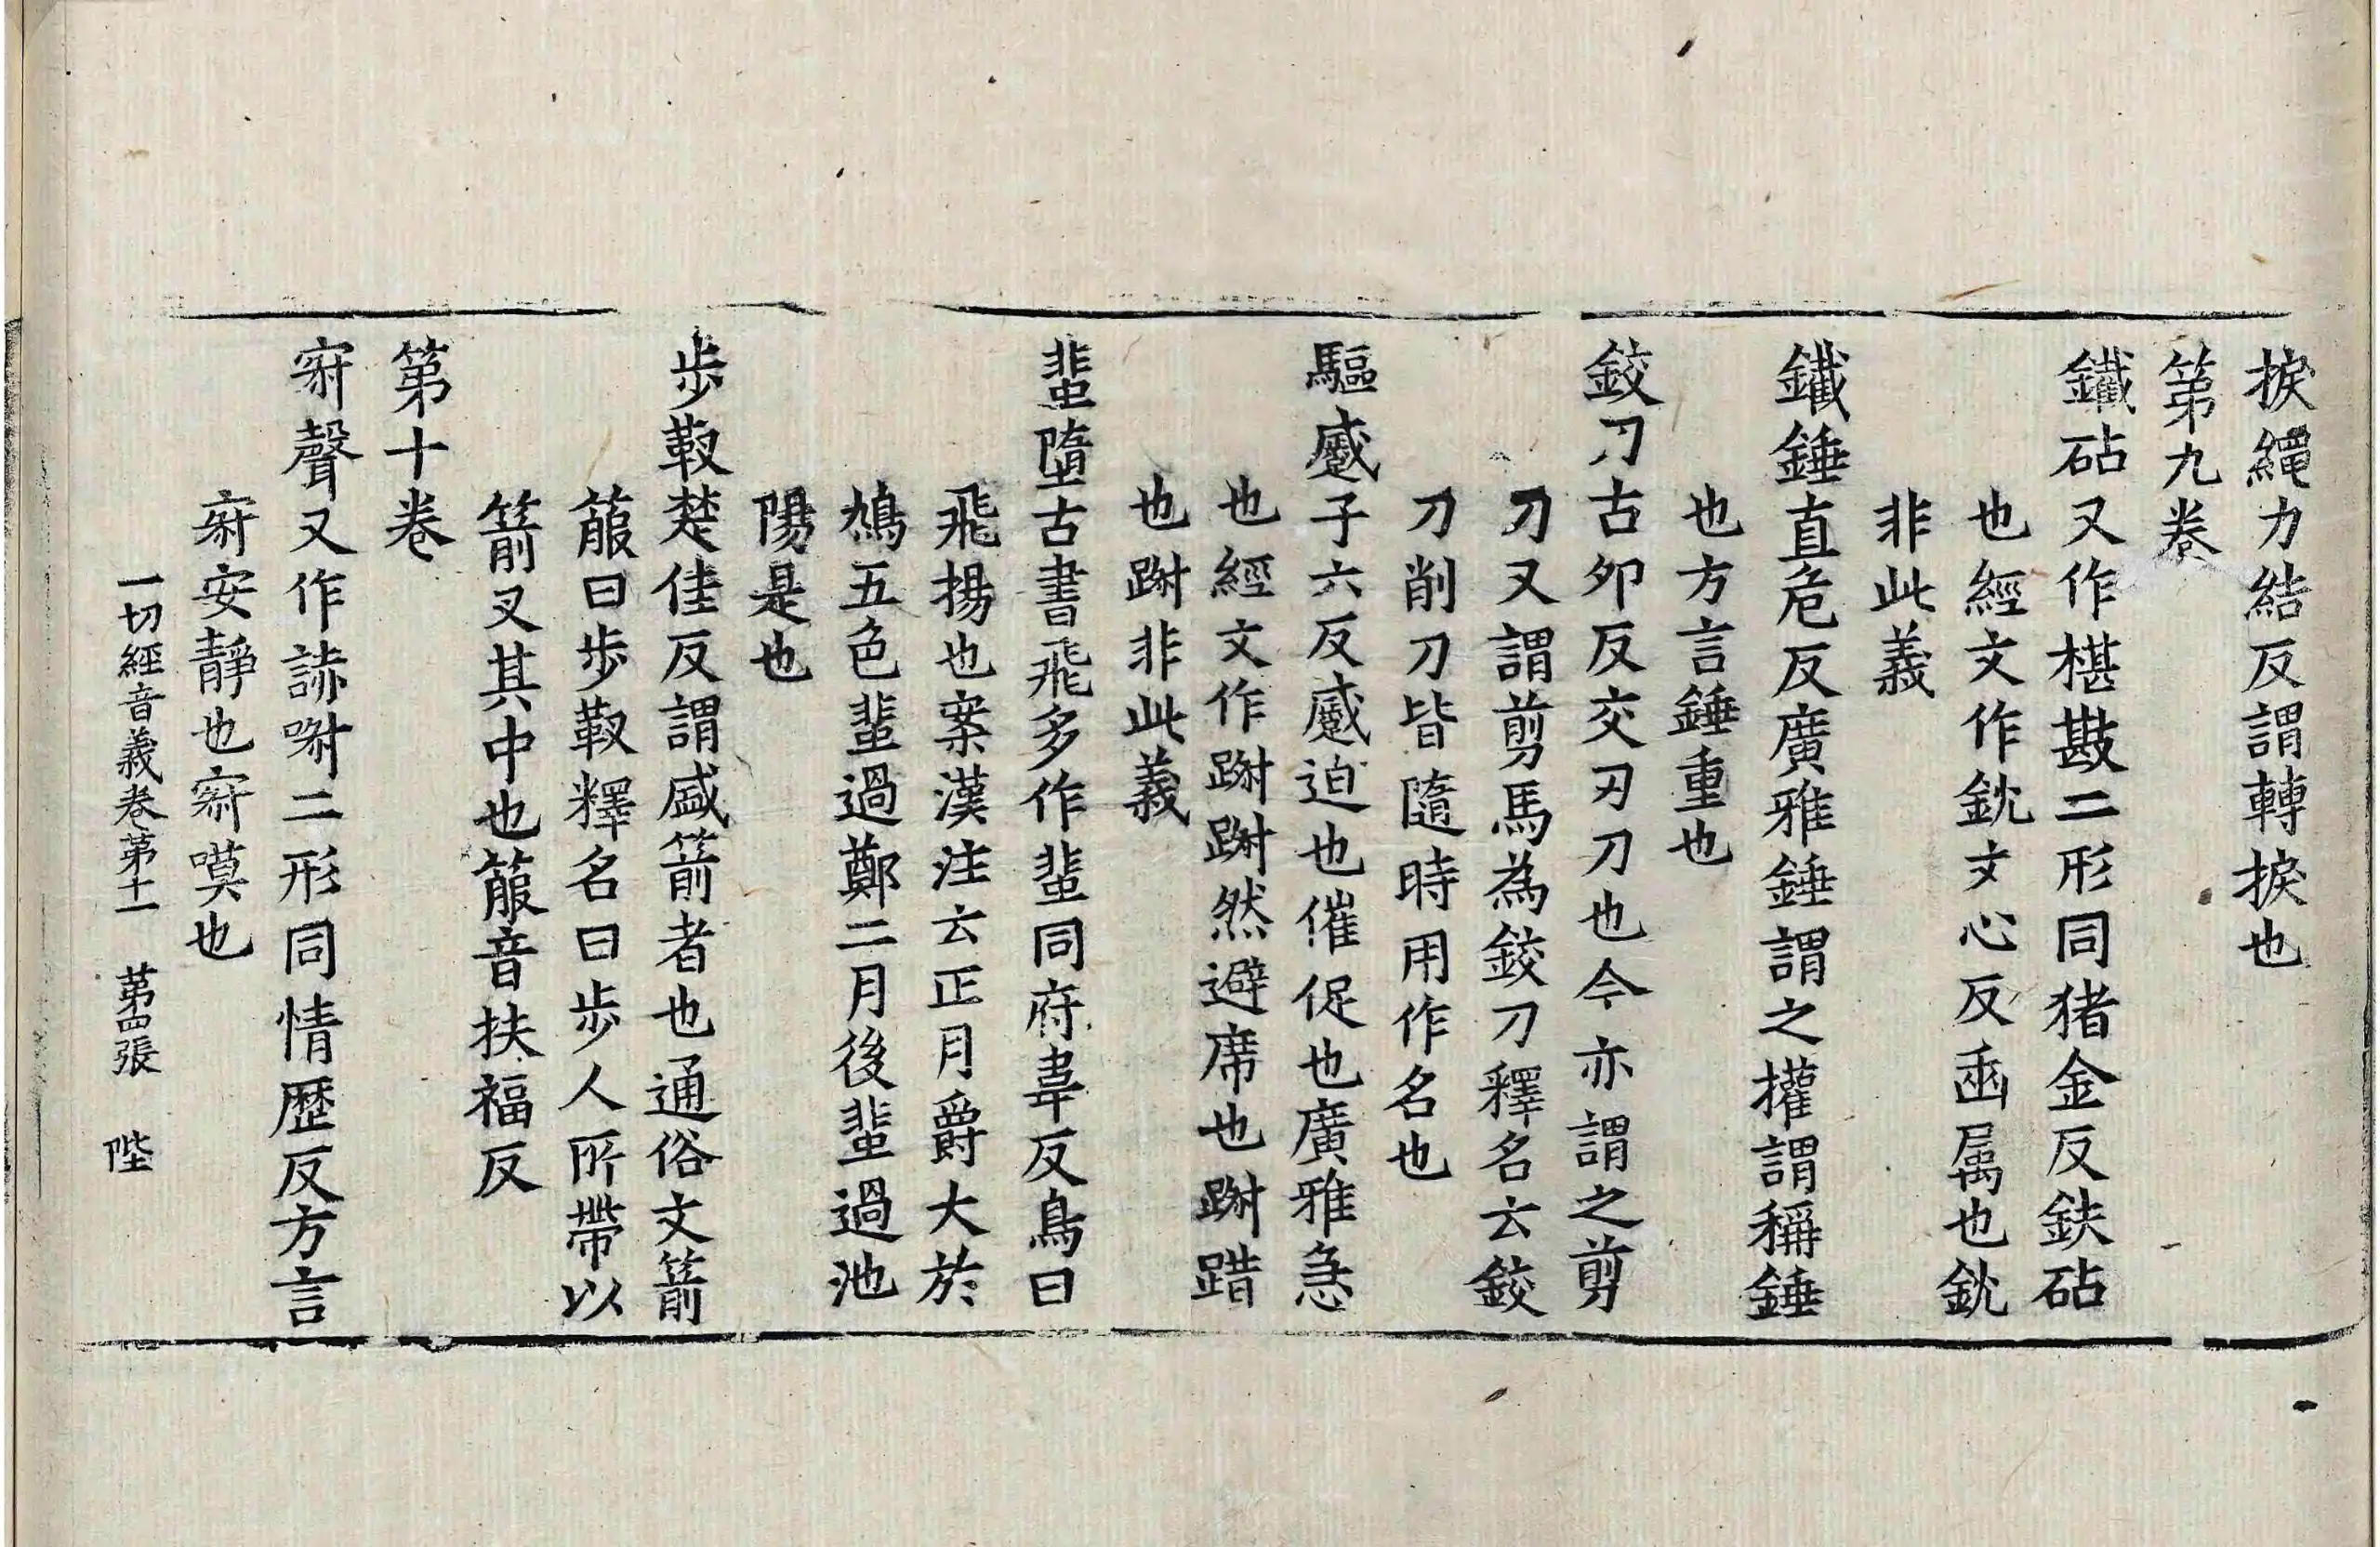 捩繩力結反謂轉捩也
第九卷
鐵砧又作椹㪛二形同猪金反鈇砧
也經文作鈂文心反臿属也鈂
非此義
鐵錘直危反廣雅錘謂之權謂稱錘
也方言錘重也
鉸刀古夘反交刃刀也今亦謂之剪
刀又謂剪馬為鉸刀釋名云鉸
刀削刀皆隨時用作名也
驅蹙子六反蹙迫也催促也廣雅急
也經文作踧踧然避席也踧踖
也踧非此義
蜚墮古書飛多作蜚同府韋反鳥曰
飛揚也案漢注云正月爵大於
鴆五色蜚過鄭二月後蜚過池
陽是也
步靫楚佳反謂盛箭者也通俗文箭
箙曰步靫釋名曰步人所帶以
箭叉其中也箙音扶福反
第十卷
寂聲又作誎㖑二形同情歷反方言
寂安靜也寂嘆也
一切經音義卷第十一　第四張　陛